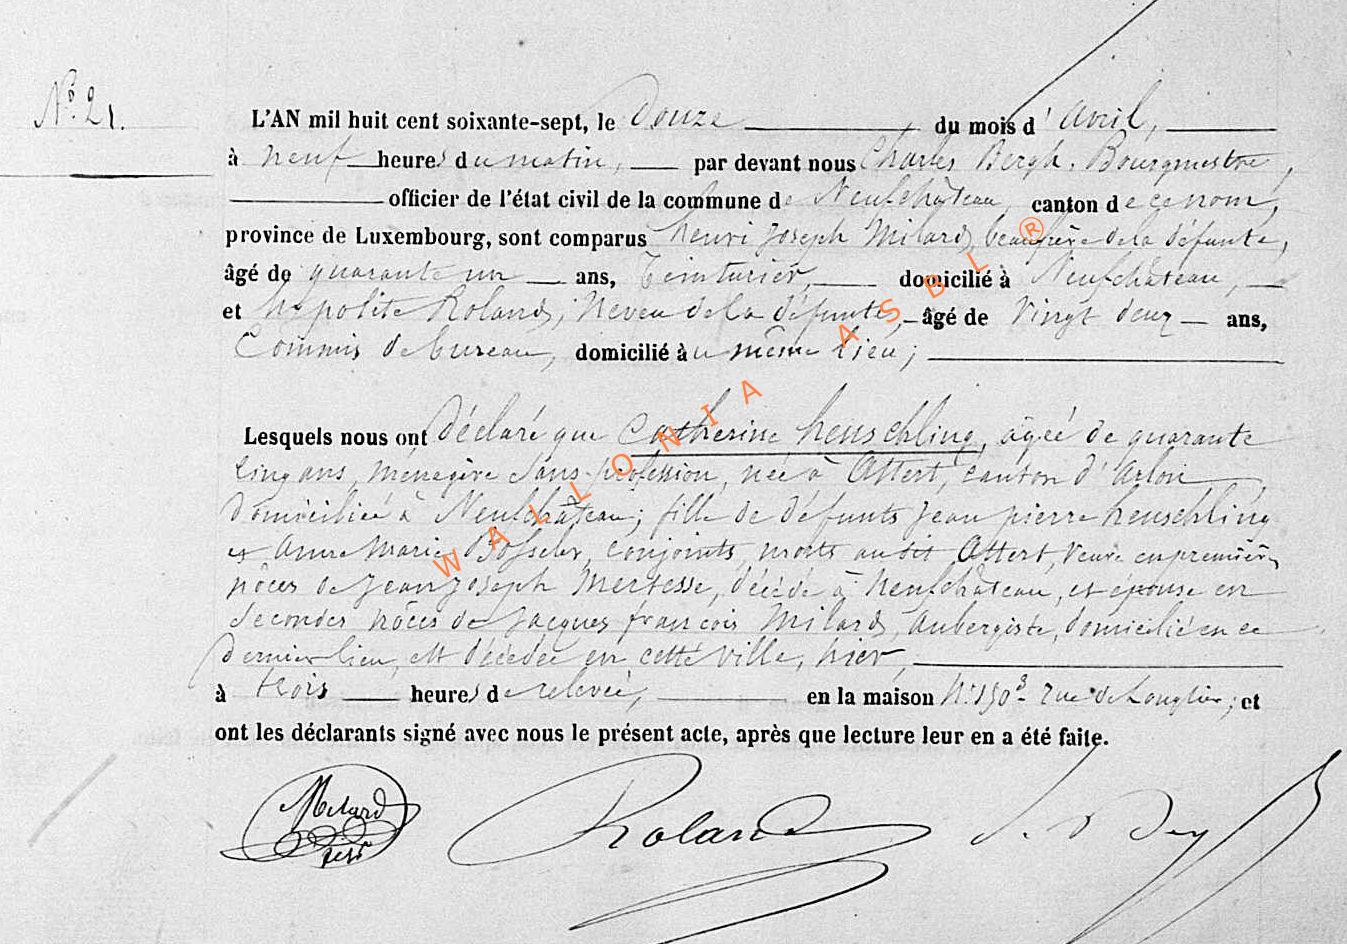 N° 21.
L'AN mil huit cent soixante-sept, le Douze du mois d'avril,
à neuf heures du matin, par devant nous Charles Bergh, Bourgmestre,
officier de l'état civil de la commune de Neufchâteau, canton de ce nom,
province de Luxembourg, sont comparus henri joseph Milard, beaufrère de la défunte,
âgé de quarante un ans, Teinturier, domicilié à Neufchâteau,
et hypolite Roland, Neveu de la défunte, âgé de Vingt deux ans,
Commis de bureau, domicilié au même lieu;
Lesquels nous ont Déclaré que Catherine heuschling, âgée de quarante
cinq ans, menagère sans profession, née à Attert, canton d'arlon
domiciliée à Neufchâteau; fille de défunts jean pierre heuschling
et Anne Marie, conjoints, morts audit Attert, Veuve en premières
nôces de jean joseph Mertesse, décédé à Neufchâteau, et épouse en
secondes nôces de jacques françois Milard, aubergiste, domicilié en ce
dernier lieu, est décédée en cette ville, hier,
à trois heures de relevée, en la maison N° 150 rue de Longlier; et
ont les déclarants signé avec nous le présent acte, après que lecture leur en a été faite.
Milard Roland
WALLONIA ASBL ®